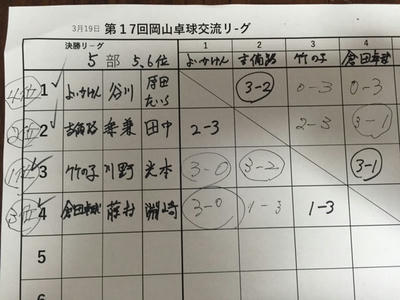 3月19日 第17回岡山卓球交流リーグ
決勝リーグ
5部 5,6位
1 2 3 4
よいかけん 吉備路 竹の子 倉田卓球
4位 1 よいかけん 谷川 原田 3-2 0-3 0-3
2位 2 吉備路 乗兼 田中 2-3 2-3 3-1
1位 3 竹の子 川野 光本 3-0 3-2 3-1
3位 4 倉田卓球 藤村 渕崎 3-0 1-3 1-3
5